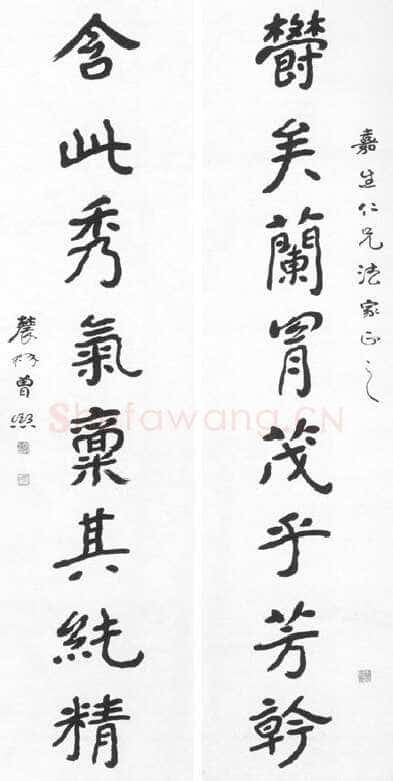 嘉生仁兄法家正之
欝矣蘭胄茂乎芳幹
含此秀氣稟其純精
農髯曾熙
Shufawang.CN